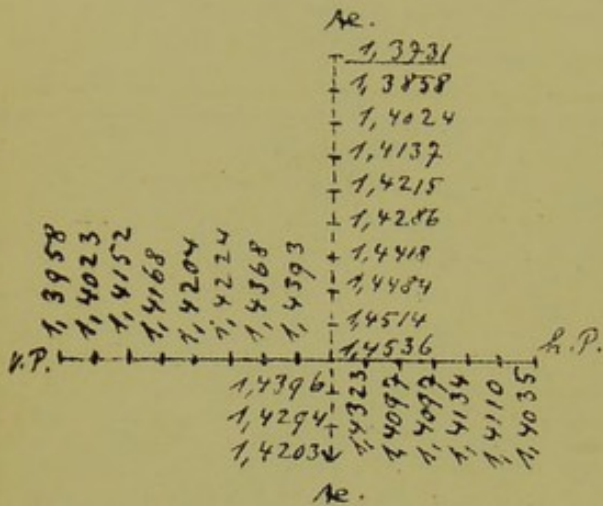 Ae.
1,3731
1,3858
1,4024
1,4137
1,4215
1,4286
1,4418
1,4484
1,4514
1,4536
1,3958
1,4023
1,4152
1,4168
1,4204
1,4224
1,4368
1,4393
v.P.
h.P.
1,4396
1,4294
1,4203
1,4323
1,4097
1,4092
1,4134
1,4110
1,4035
Ae.